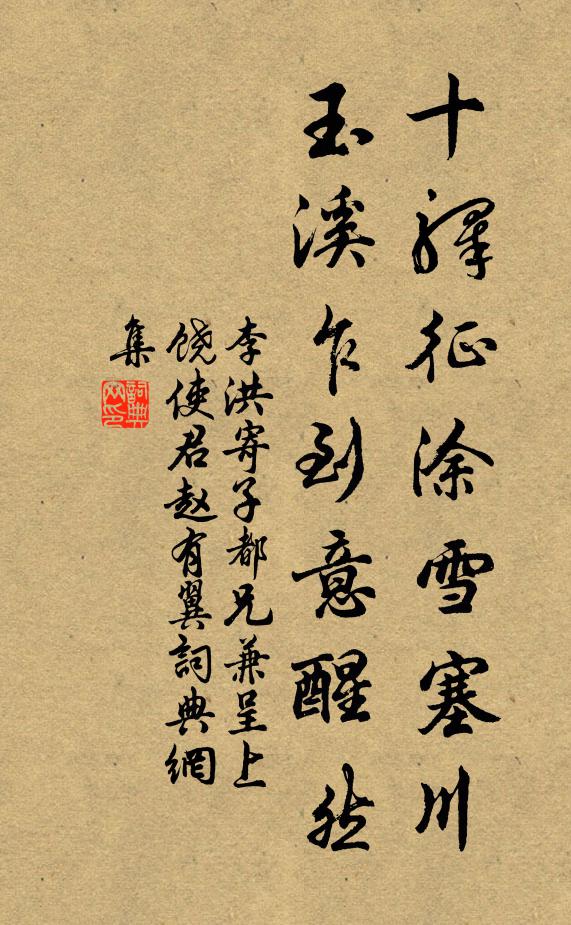 十驛征涂雪塞川
玉溪乍到意醒然
李洪寄子都兄兼呈上
饶使君赵有翼詞典網
集
詞典
网印